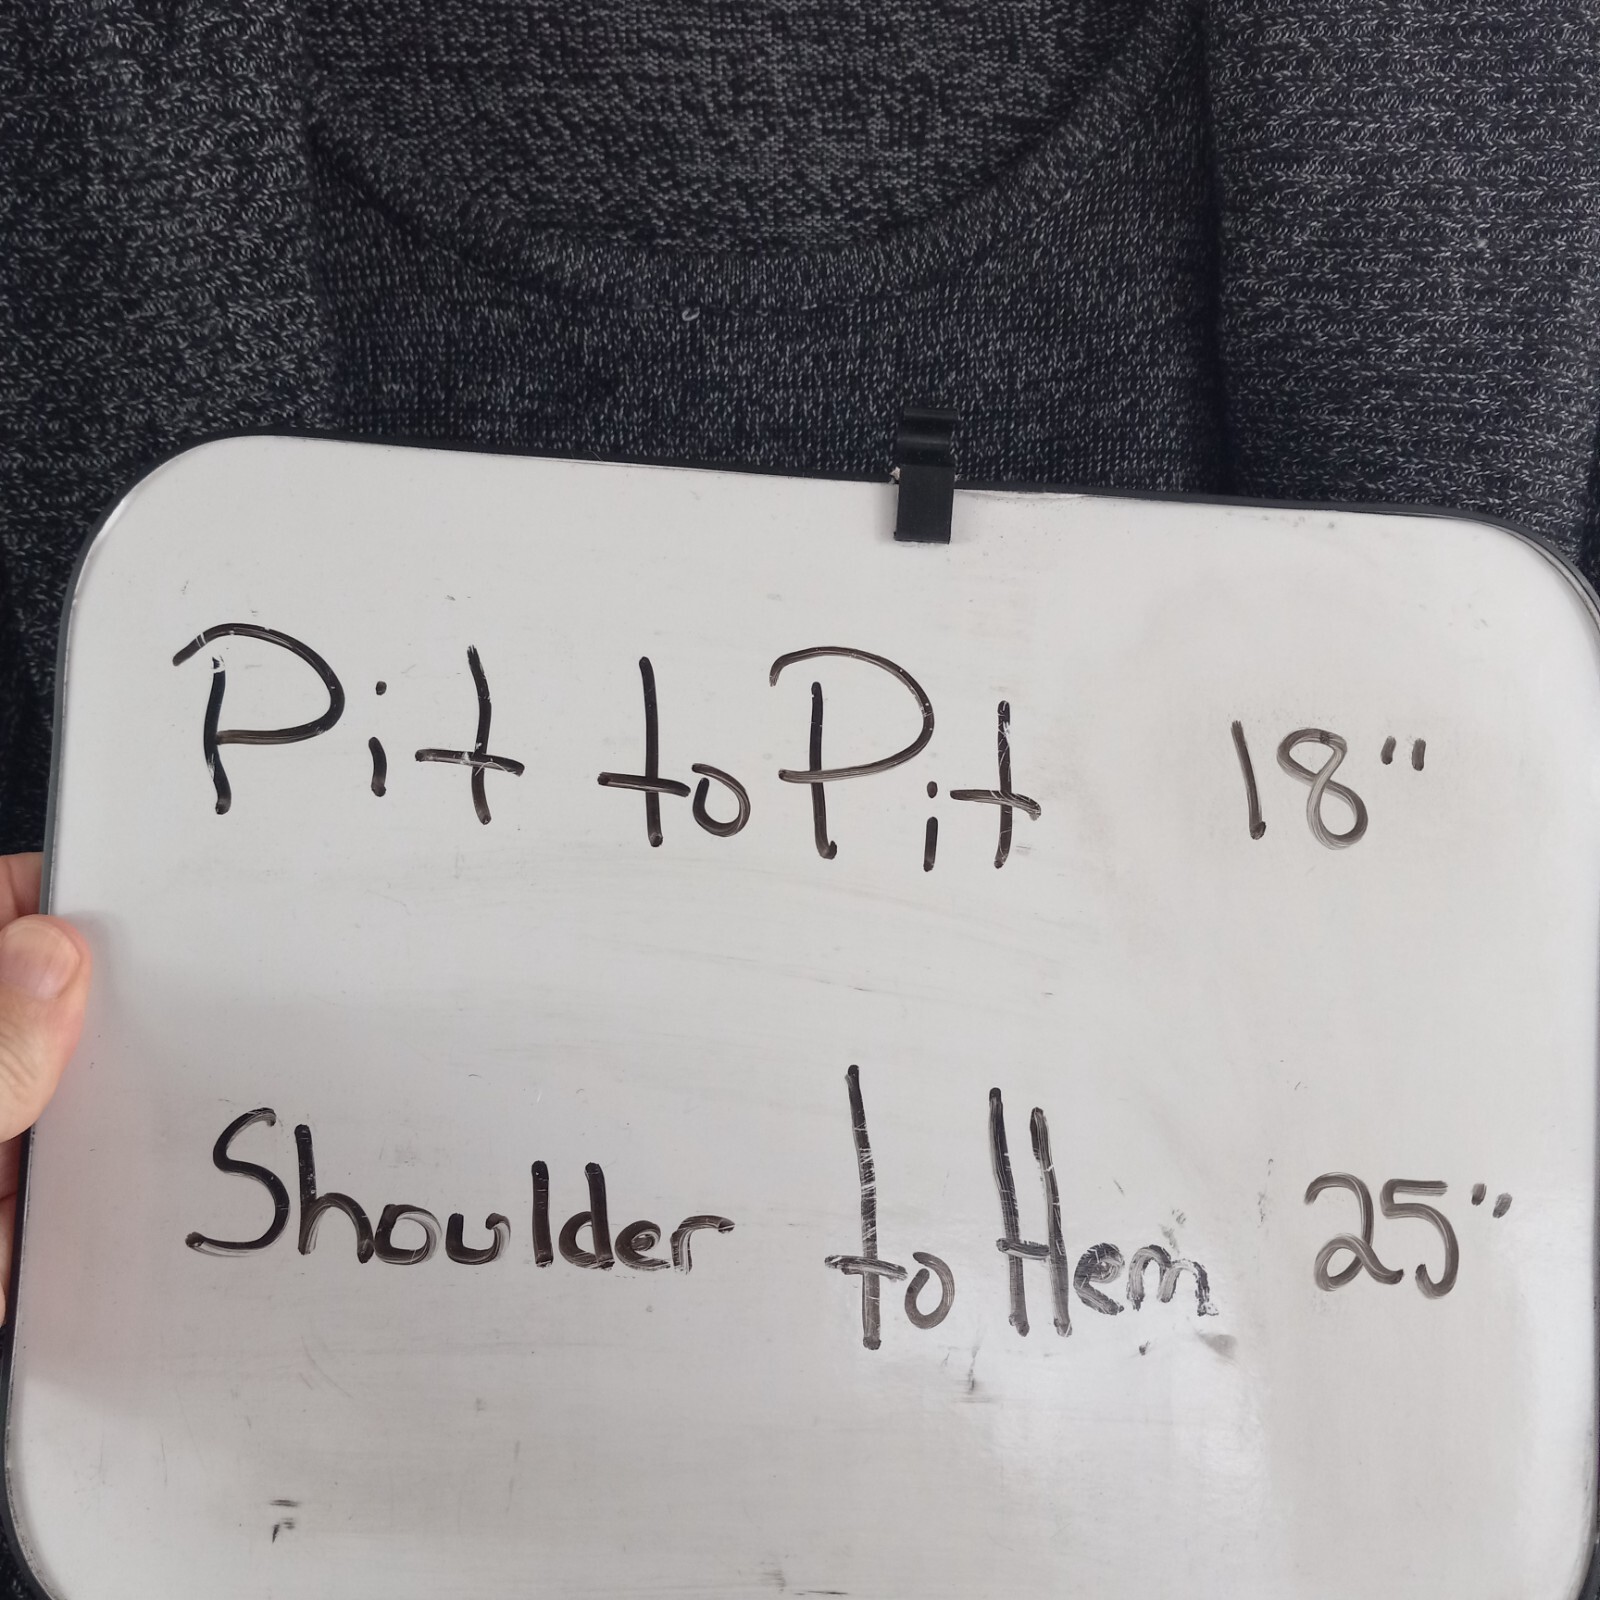 Pit to Pit 18"
Shoulder to Hem 25"